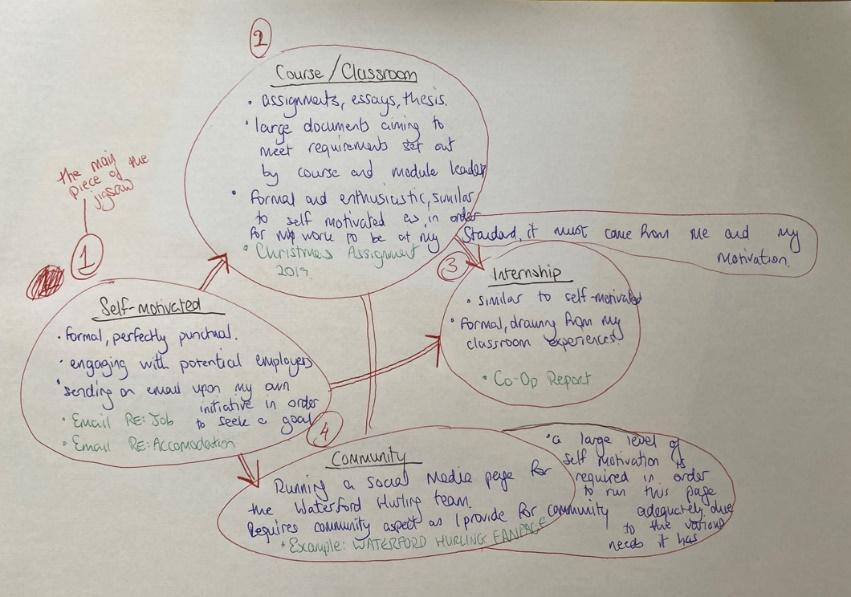 2
Course/Classroom
• assignments, essays, thesis.
• large documents aiming to
meet requirements set out
by course and module leader
• Formal and enthusiastic, similar
to self motivated as, in order
for my work to be at my Standard, it must come from me and my
motivation.
• Christmas Assignment
2019
the main
piece of the
jigsaw
1
Self-motivated
• formal, perfectly punctual.
• engaging with potential employers
• sending an email upon my own
initiative in order
to seek a goal
• Email RE: Job
• Email RE: Accomodation
3
Internship
• similar to self-motivated
• Formal, drawing from my
classroom experiences
• Co-Op Report
4
Community
Running a Social Media page for
the Waterford Hurling team.
Requires community aspect as I provide for community
• Example: WATERFORD HURLING FANPAGE
• a large level of
self motivation is
required in order
to run this page
adequately, due
to the various
needs it has